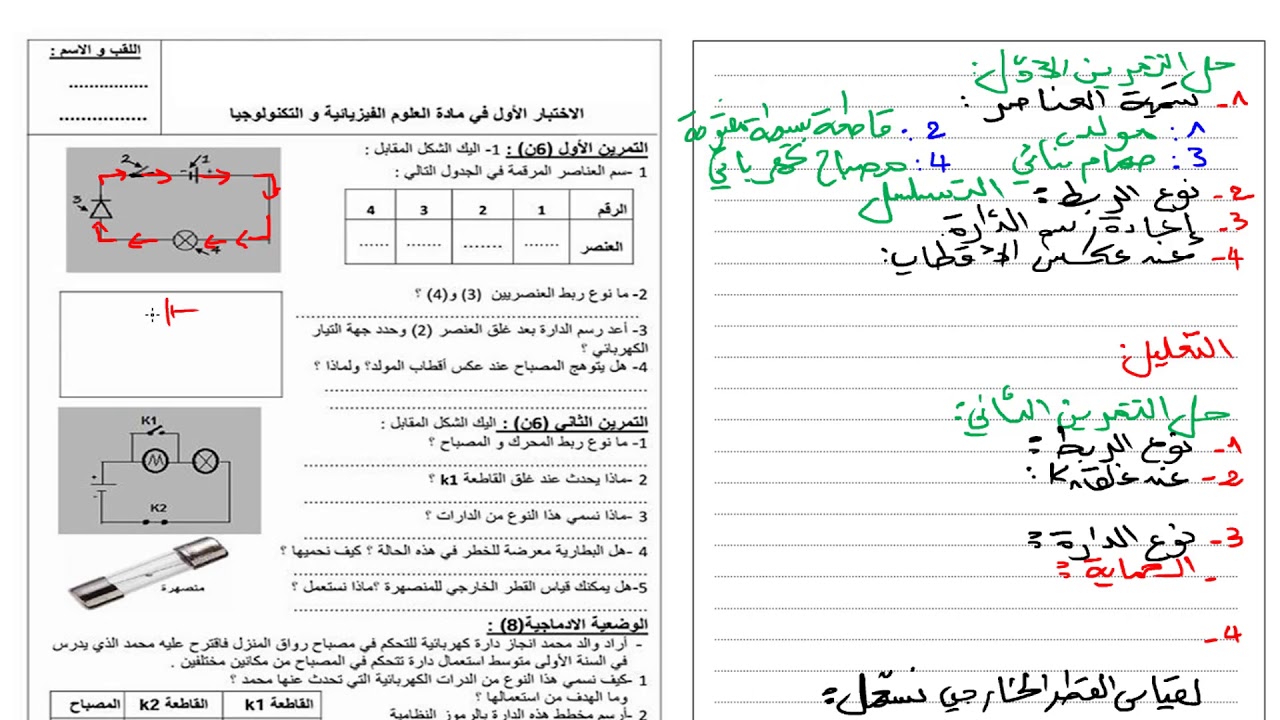 اللقب و الاسم :
...............
................
الاختبار الأول في مادة العلوم الفيزيائية و التكنولوجيا
التمرين الأول (6ن) : 1- اليك الشكل المقابل :
1 -سم العناصر المرقمة في الجدول التالي :
الرقم 1 2 3 4
العنصر ...... ....... ...... ......
1 2 3 4
- +
2- ما نوع ربط العنصريين (3) و(4) ؟
3- أعد رسم الدارة بعد غلق العنصر (2) وحدد جهة التيار
الكهربائي ؟
4- هل يتوهج المصباح عند عكس أقطاب المولد؟ ولماذا ؟
التمرين الثاني (6ن) : اليك الشكل المقابل :
1- ما نوع ربط المحرك و المصباح ؟
2 -ماذا يحدث عند غلق القاطعة k1 ؟
3 -ماذا نسمي هذا النوع من الدارات ؟
4 -هل البطارية معرضة للخطر في هذه الحالة ؟ كيف نحميها ؟
5-هل يمكنك قياس القطر الخارجي للمنصهرة ؟ماذا نستعمل ؟
K1
M
+
-
K2
منصهرة
الوضعية الادماجية(8) :
- أراد والد محمد انجاز دارة كهربائية للتحكم في مصباح رواق المنزل فاقترح عليه محمد الذي يدرس
في السنة الأولى متوسط استعمال دارة تتحكم في المصباح من مكانين مختلفين .
1 -كيف نسمي هذا النوع من الدرات الكهربائية التي تحدث عنها محمد ؟
وما الهدف من استعمالها ؟
2 -أرسم مخطط هذه الدارة بالرموز النظامية
القاطعة k1 القاطعة k2 المصباح
حل التمرين الأول:
1- تسمية العناصر :
1: مولد 2: قاطعة بسيطة مفتوحة
3: صمام ثنائي 4: مصباح كهربائي
2- نوع الربط: التسلسل
3- إعادة رسم الدارة
4- عند عكس الأقطاب:
التعليل:
حل التمرين الثاني:
1- نوع الربط:
2- عند غلق K1:
3- نوع الدارة:
- الحماية:
4-
لقياس القطر الخارجي نستعمل: